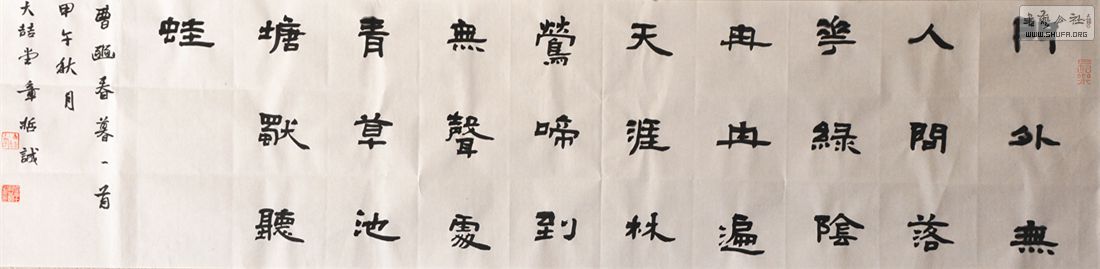 門外無
人問落
華綠陰
冉冉遍
天涯林
鶯啼到
無聲處
青草池
塘獨聽
蛙
曹豳春暮一首
甲午秋月
大喆堂章柘誠
書法公社
WWW.SHUFA.ORG